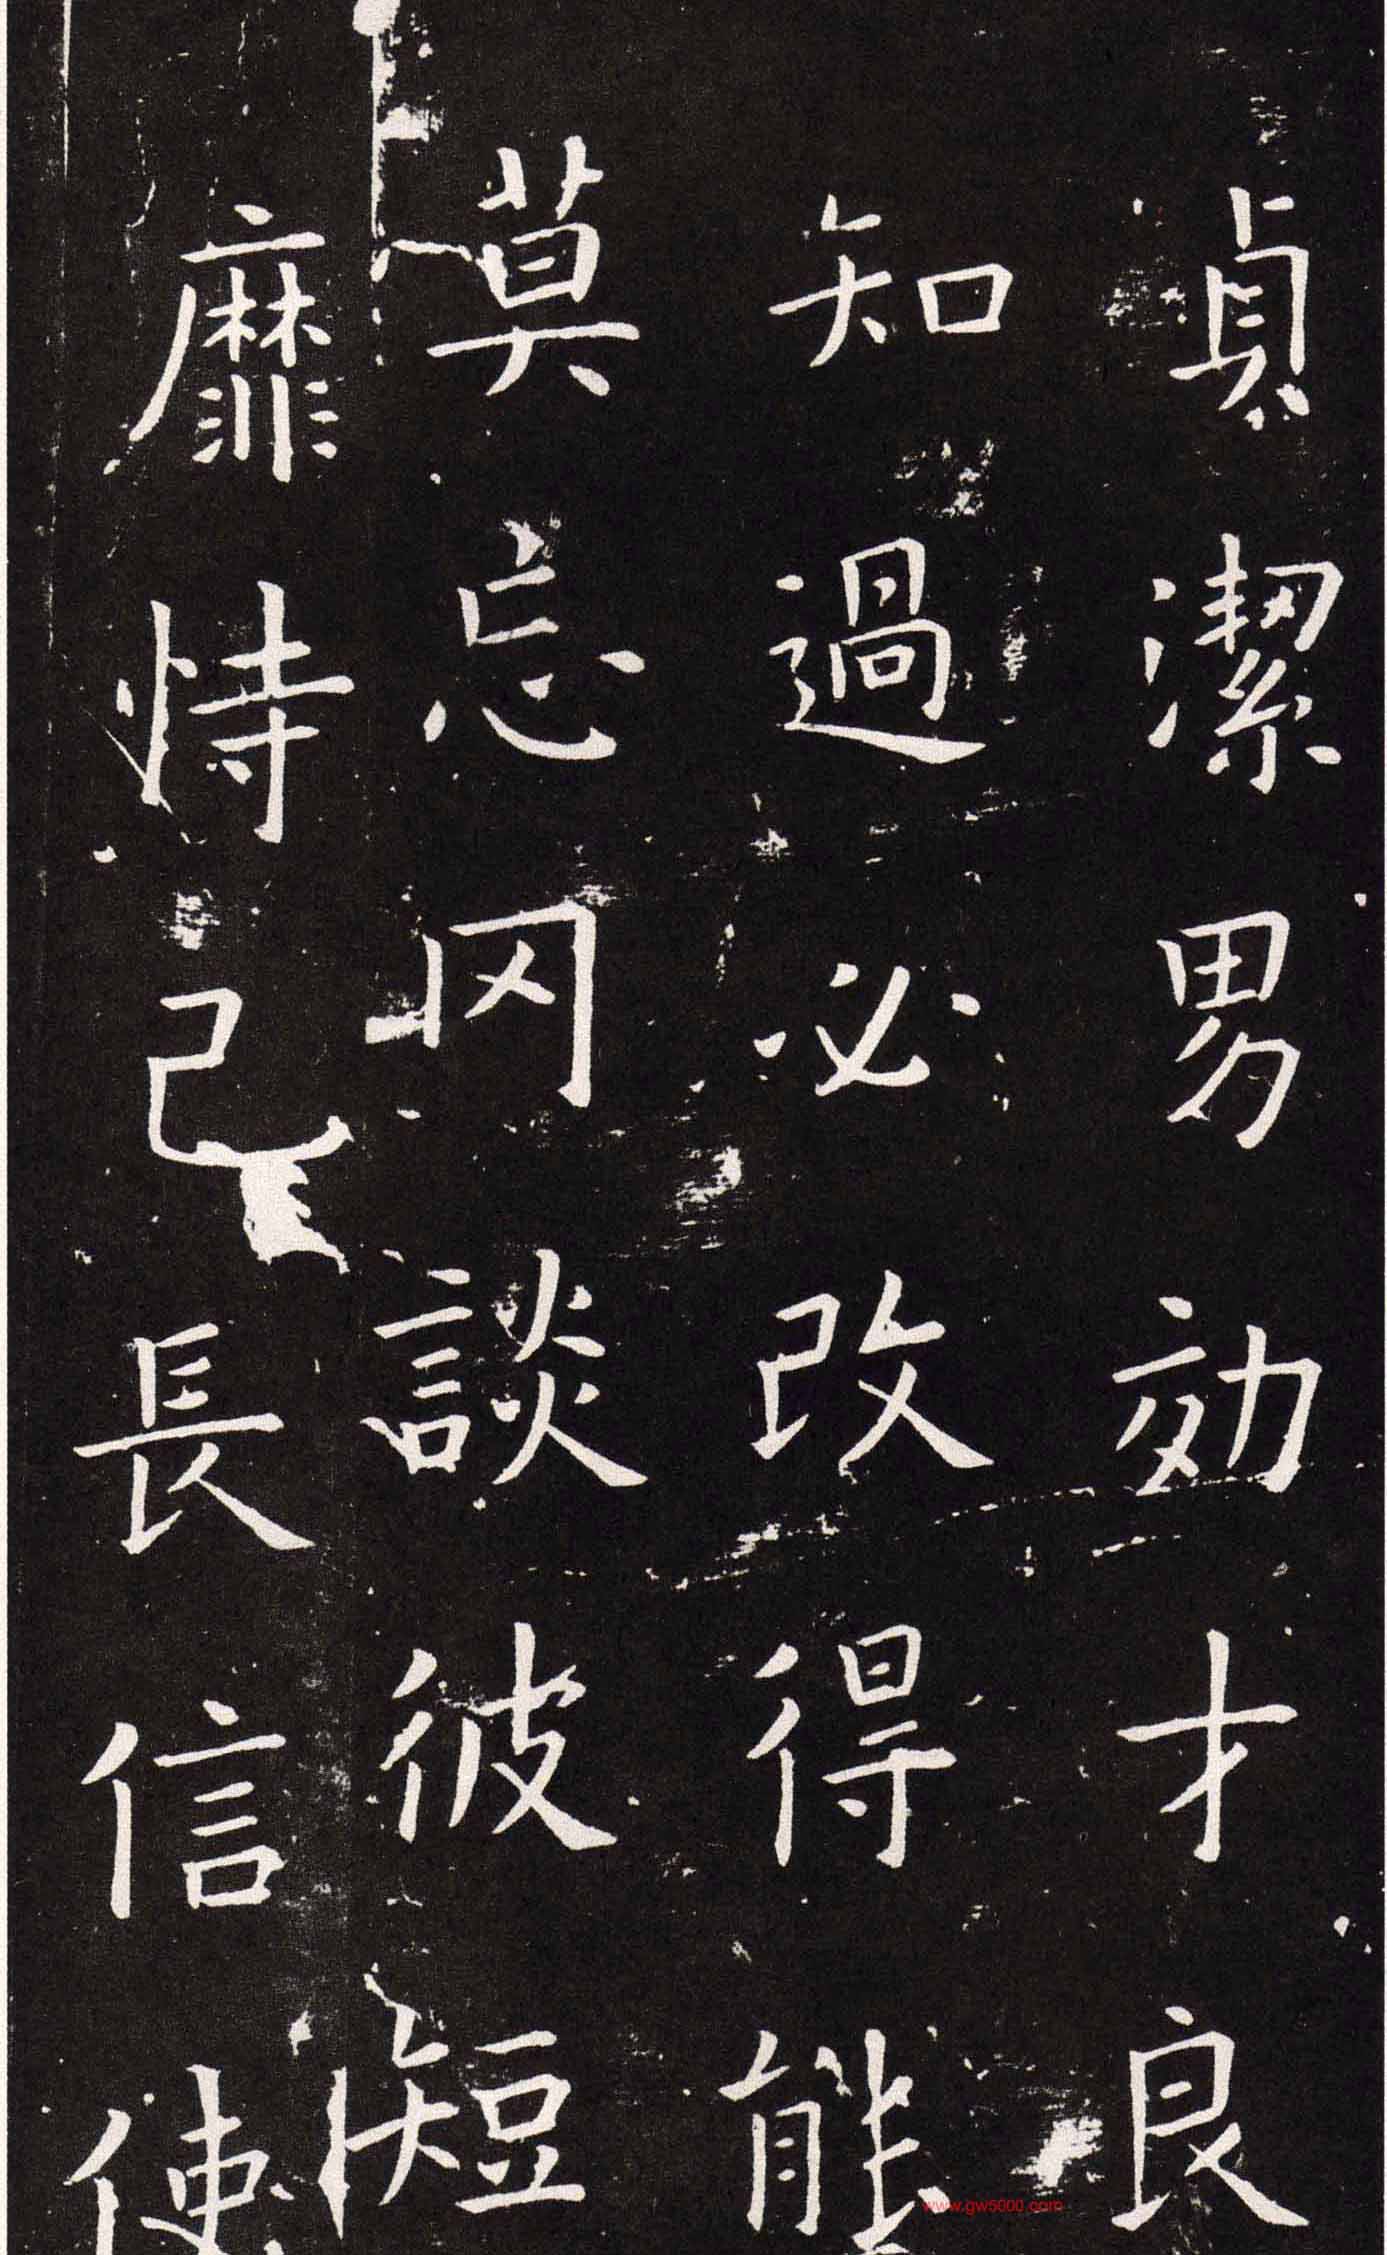 貞潔男効才良
知過必改得能
莫忘罔談彼短
靡恃己長信使
www.gw5000.com